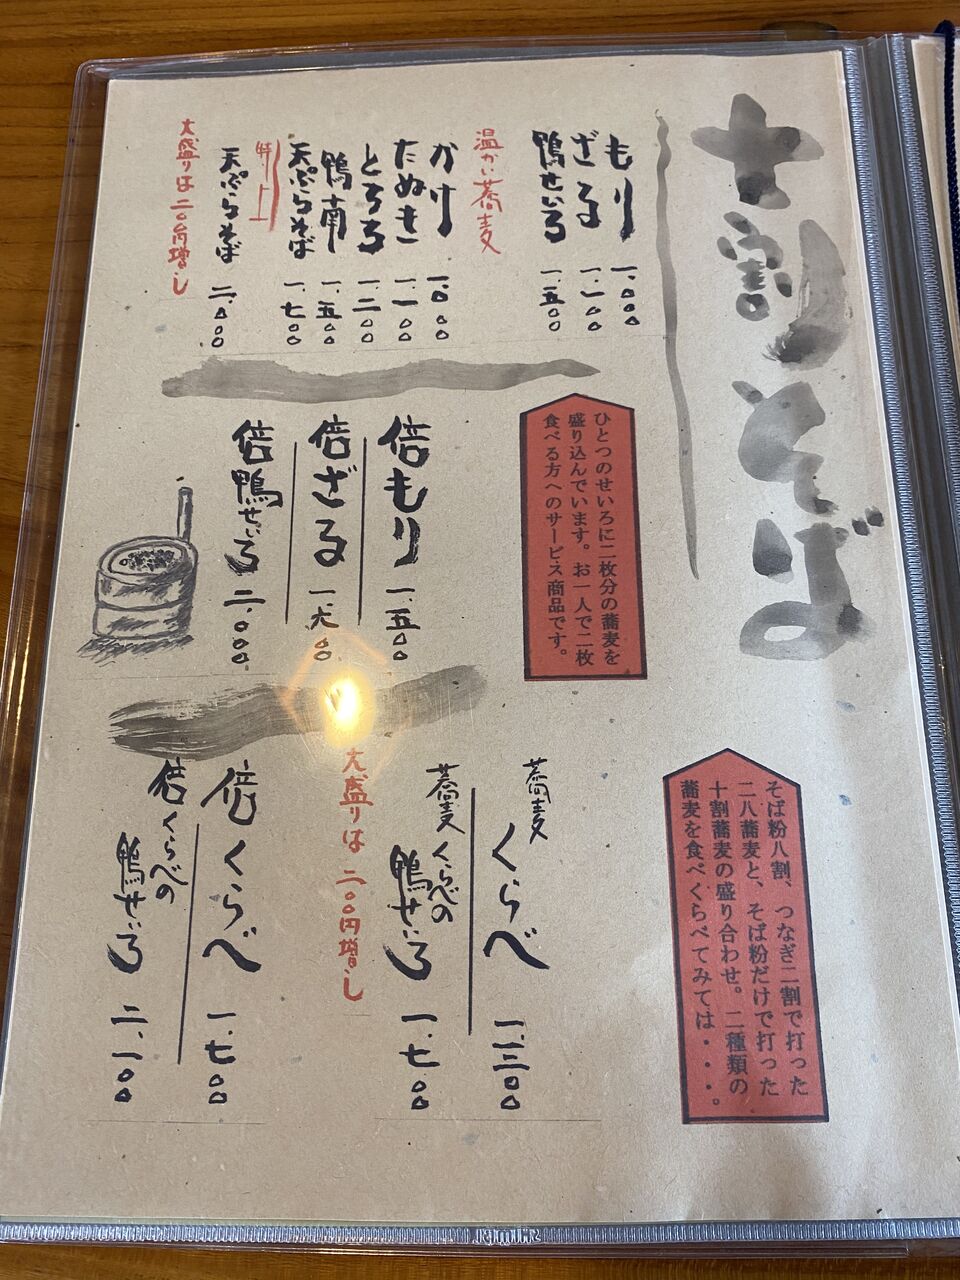 十割りそば
もり 一、〇〇〇
ざる 一、一〇〇
鴨せいろ 一、五〇〇
温かい蕎麦
かけ 一、〇〇〇
たぬき 一、一〇〇
とろろ 一、二〇〇
鴨南 一、五〇〇
天ぷらそば 一、七〇〇
特上
天ぷらそば 二、〇〇〇
大盛りは二〇〇円増し
ひとつのせいろに二枚分の蕎麦を
盛り込んでいます。お一人で二枚
食べる方へのサービス商品です。
倍もり 一、五〇〇
倍ざる 一、六〇〇
倍鴨せいろ 二、〇〇〇
そば粉八割、つなぎ二割で打った
二八蕎麦と、そば粉だけで打った
十割蕎麦の盛り合わせ。二種類の
蕎麦を食べくらべてみては・・・。
蕎麦くらべ 一、三〇〇
蕎麦くらべの
鴨せいろ 一、七〇〇
大盛りは二〇〇円増し
倍くらべ 一、七〇〇
倍くらべの
鴨せいろ 二、一〇〇